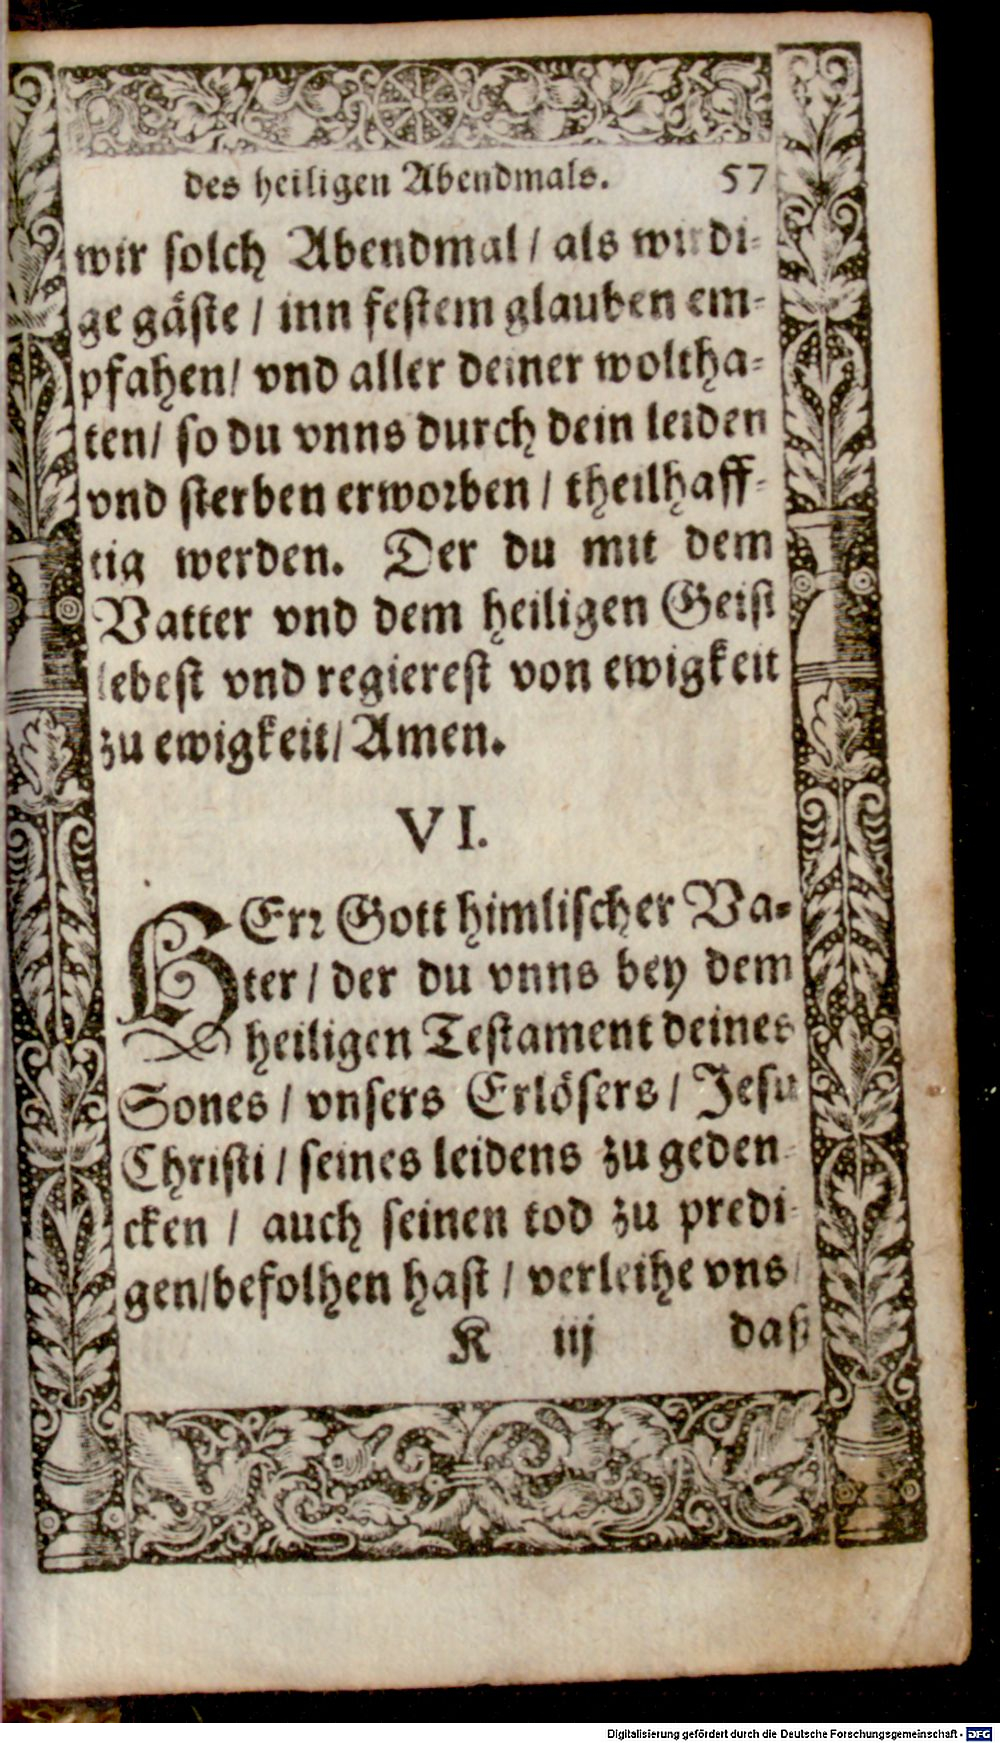 des heiligen Abendmals. 57
wir solch Abendmal / als wirdi-
ge gäste / inn festem glauben em-
pfahen / vnd aller deiner woltha-
ten / so du vnns durch dein leiden
vnd sterben erworben / theilhaff-
tig werden. Der du mit dem
Vatter vnd dem heiligen Geist
lebest vnd regierest von ewigkeit
zu ewigkeit / Amen.
VI.
HErr Gott himlischer Va-
ter / der du vnns bey dem
heiligen Testament deines
Sones / vnsers Erlösers / Jesu
Christi / seines leidens zu geden-
cken / auch seinen tod zu predi-
gen / befolhen hast / verleihe vns /
K iij daß
Digitalisierung gefördert durch die Deutsche Forschungsgemeinschaft - DFG